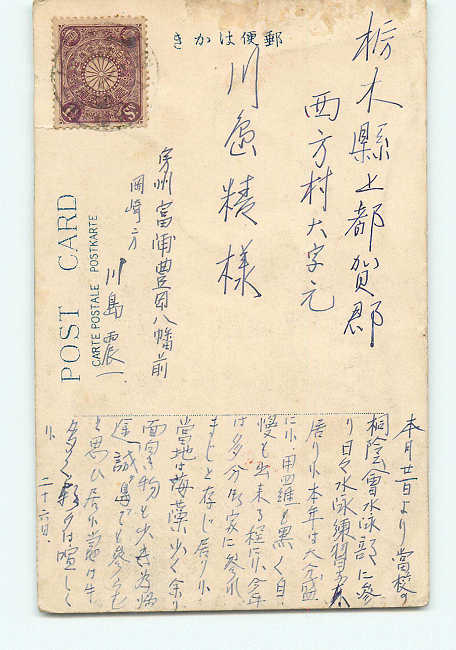 きかは便郵
栃木縣上都賀郡
西方村大字元
川島精様
房州富浦豊岡八幡前
岡崎方
川島震一
POST CARD
CARTE POSTALE POSTKARTE
本月廿一日より當校の
桐陰會水泳部に参
り日々水泳練習
居り小本年は大分盛
に小 用四維も黒く自
慢も出来る程に小 今年
は多分御家に参れ
まじと存じ居り小
當地は海藻少く余り
面白き物も少き為帰
途 誠 島でも参らむ
と思ひ居小
多く 々は喧しく
小 二十六日